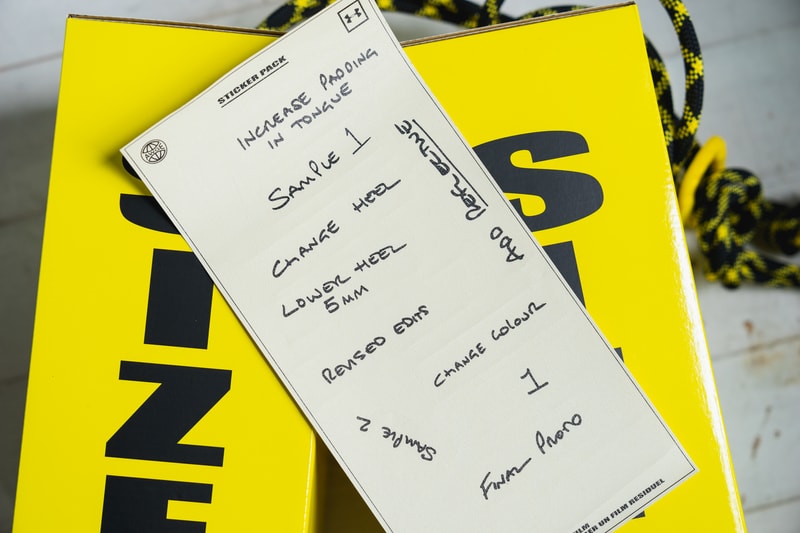 STICKER PACK
INCREASE PADDING
IN TONGUE
SAMPLE 1
ADD REFLECTIVE
CHANGE HEEL
LOWER HEEL
5MM
REVISED EDITS
CHANGE COLOUR
1
SAMPLE 2
FINAL PROTO
ILM
ER UN FILM RESIDUEL
SIZE
S